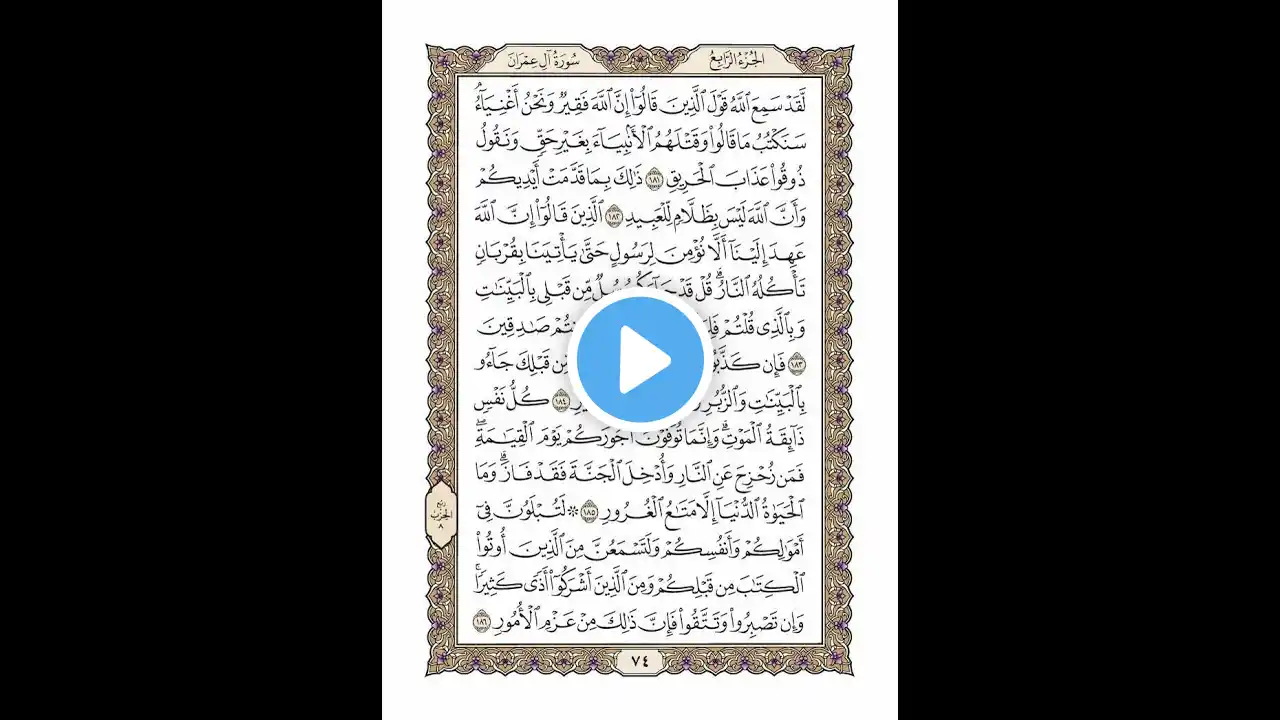 الجُزْءُ الرَّابِعُ
سُورَةُ آلِ عِمْرَانَ
لَّقَدۡ سَمِعَ ٱللَّهُ قَوۡلَ ٱلَّذِينَ قَالُوٓاْ إِنَّ ٱللَّهَ فَقِيرٞ وَنَحۡنُ أَغۡنِيَآءُۘ
سَنَكۡتُبُ مَا قَالُواْ وَقَتۡلَهُمُ ٱلۡأَنۢبِيَآءَ بِغَيۡرِ حَقّٖ وَنَقُولُ
ذُوقُواْ عَذَابَ ٱلۡحَرِيقِ ١٨١ ذَٰلِكَ بِمَا قَدَّمَتۡ أَيۡدِيكُمۡ
وَأَنَّ ٱللَّهَ لَيۡسَ بِظَلَّامٖ لِّلۡعَبِيدِ ١٨٢ ٱلَّذِينَ قَالُوٓاْ إِنَّ ٱللَّهَ
عَهِدَ إِلَيۡنَآ أَلَّا نُؤۡمِنَ لِرَسُولٍ حَتَّىٰ يَأۡتِيَنَا بِقُرۡبَانٖ
تَأۡكُلُهُ ٱلنَّارُۗ قُلۡ قَدۡ مِّن قَبۡلِي بِٱلۡبَيِّنَٰتِ
وَبِٱلَّذِي قُلۡتُمۡ صَٰدِقِينَ
١٨٣ فَإِن قَبۡلِكَ جَآءُو
بِٱلۡبَيِّنَٰتِ وَٱلزُّبُرِ ١٨٤ كُلُّ نَفۡسٖ
ذَآئِقَةُ ٱلۡمَوۡتِۗ وَإِنَّمَا تُوَفَّوۡنَ أُجُورَكُمۡ يَوۡمَ ٱلۡقِيَٰمَةِۖ
فَمَن زُحۡزِحَ عَنِ ٱلنَّارِ وَأُدۡخِلَ ٱلۡجَنَّةَ فَقَدۡ فَازَۗ وَمَا
ٱلۡحَيَوٰةُ ٱلدُّنۡيَآ إِلَّا مَتَٰعُ ٱلۡغُرُورِ ١٨٥ ۞ لَتُبۡلَوُنَّ فِيٓ
أَمۡوَٰلِكُمۡ وَأَنفُسِكُمۡ وَلَتَسۡمَعُنَّ مِنَ ٱلَّذِينَ أُوتُواْ
ٱلۡكِتَٰبَ مِن قَبۡلِكُمۡ وَمِنَ ٱلَّذِينَ أَشۡرَكُوٓاْ أَذٗى كَثِيرٗاۚ
وَإِن تَصۡبِرُواْ وَتَتَّقُواْ فَإِنَّ ذَٰلِكَ مِنۡ عَزۡمِ ٱلۡأُمُورِ ١٨٦
ربع
الحزب
٨
٧٤